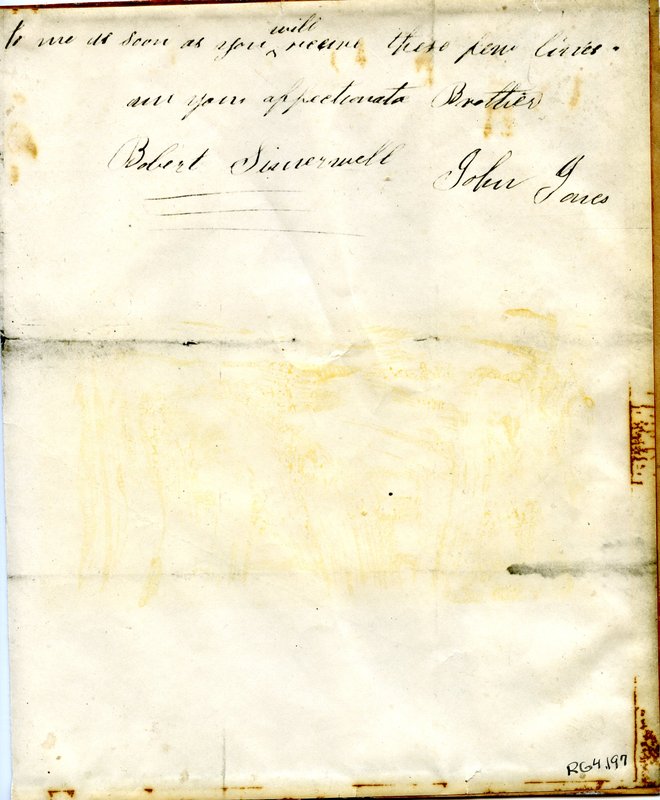 to me as soon as you will receive these few lines.
am your affectionate Brother
Robert Simerwell John Jones
RG4197